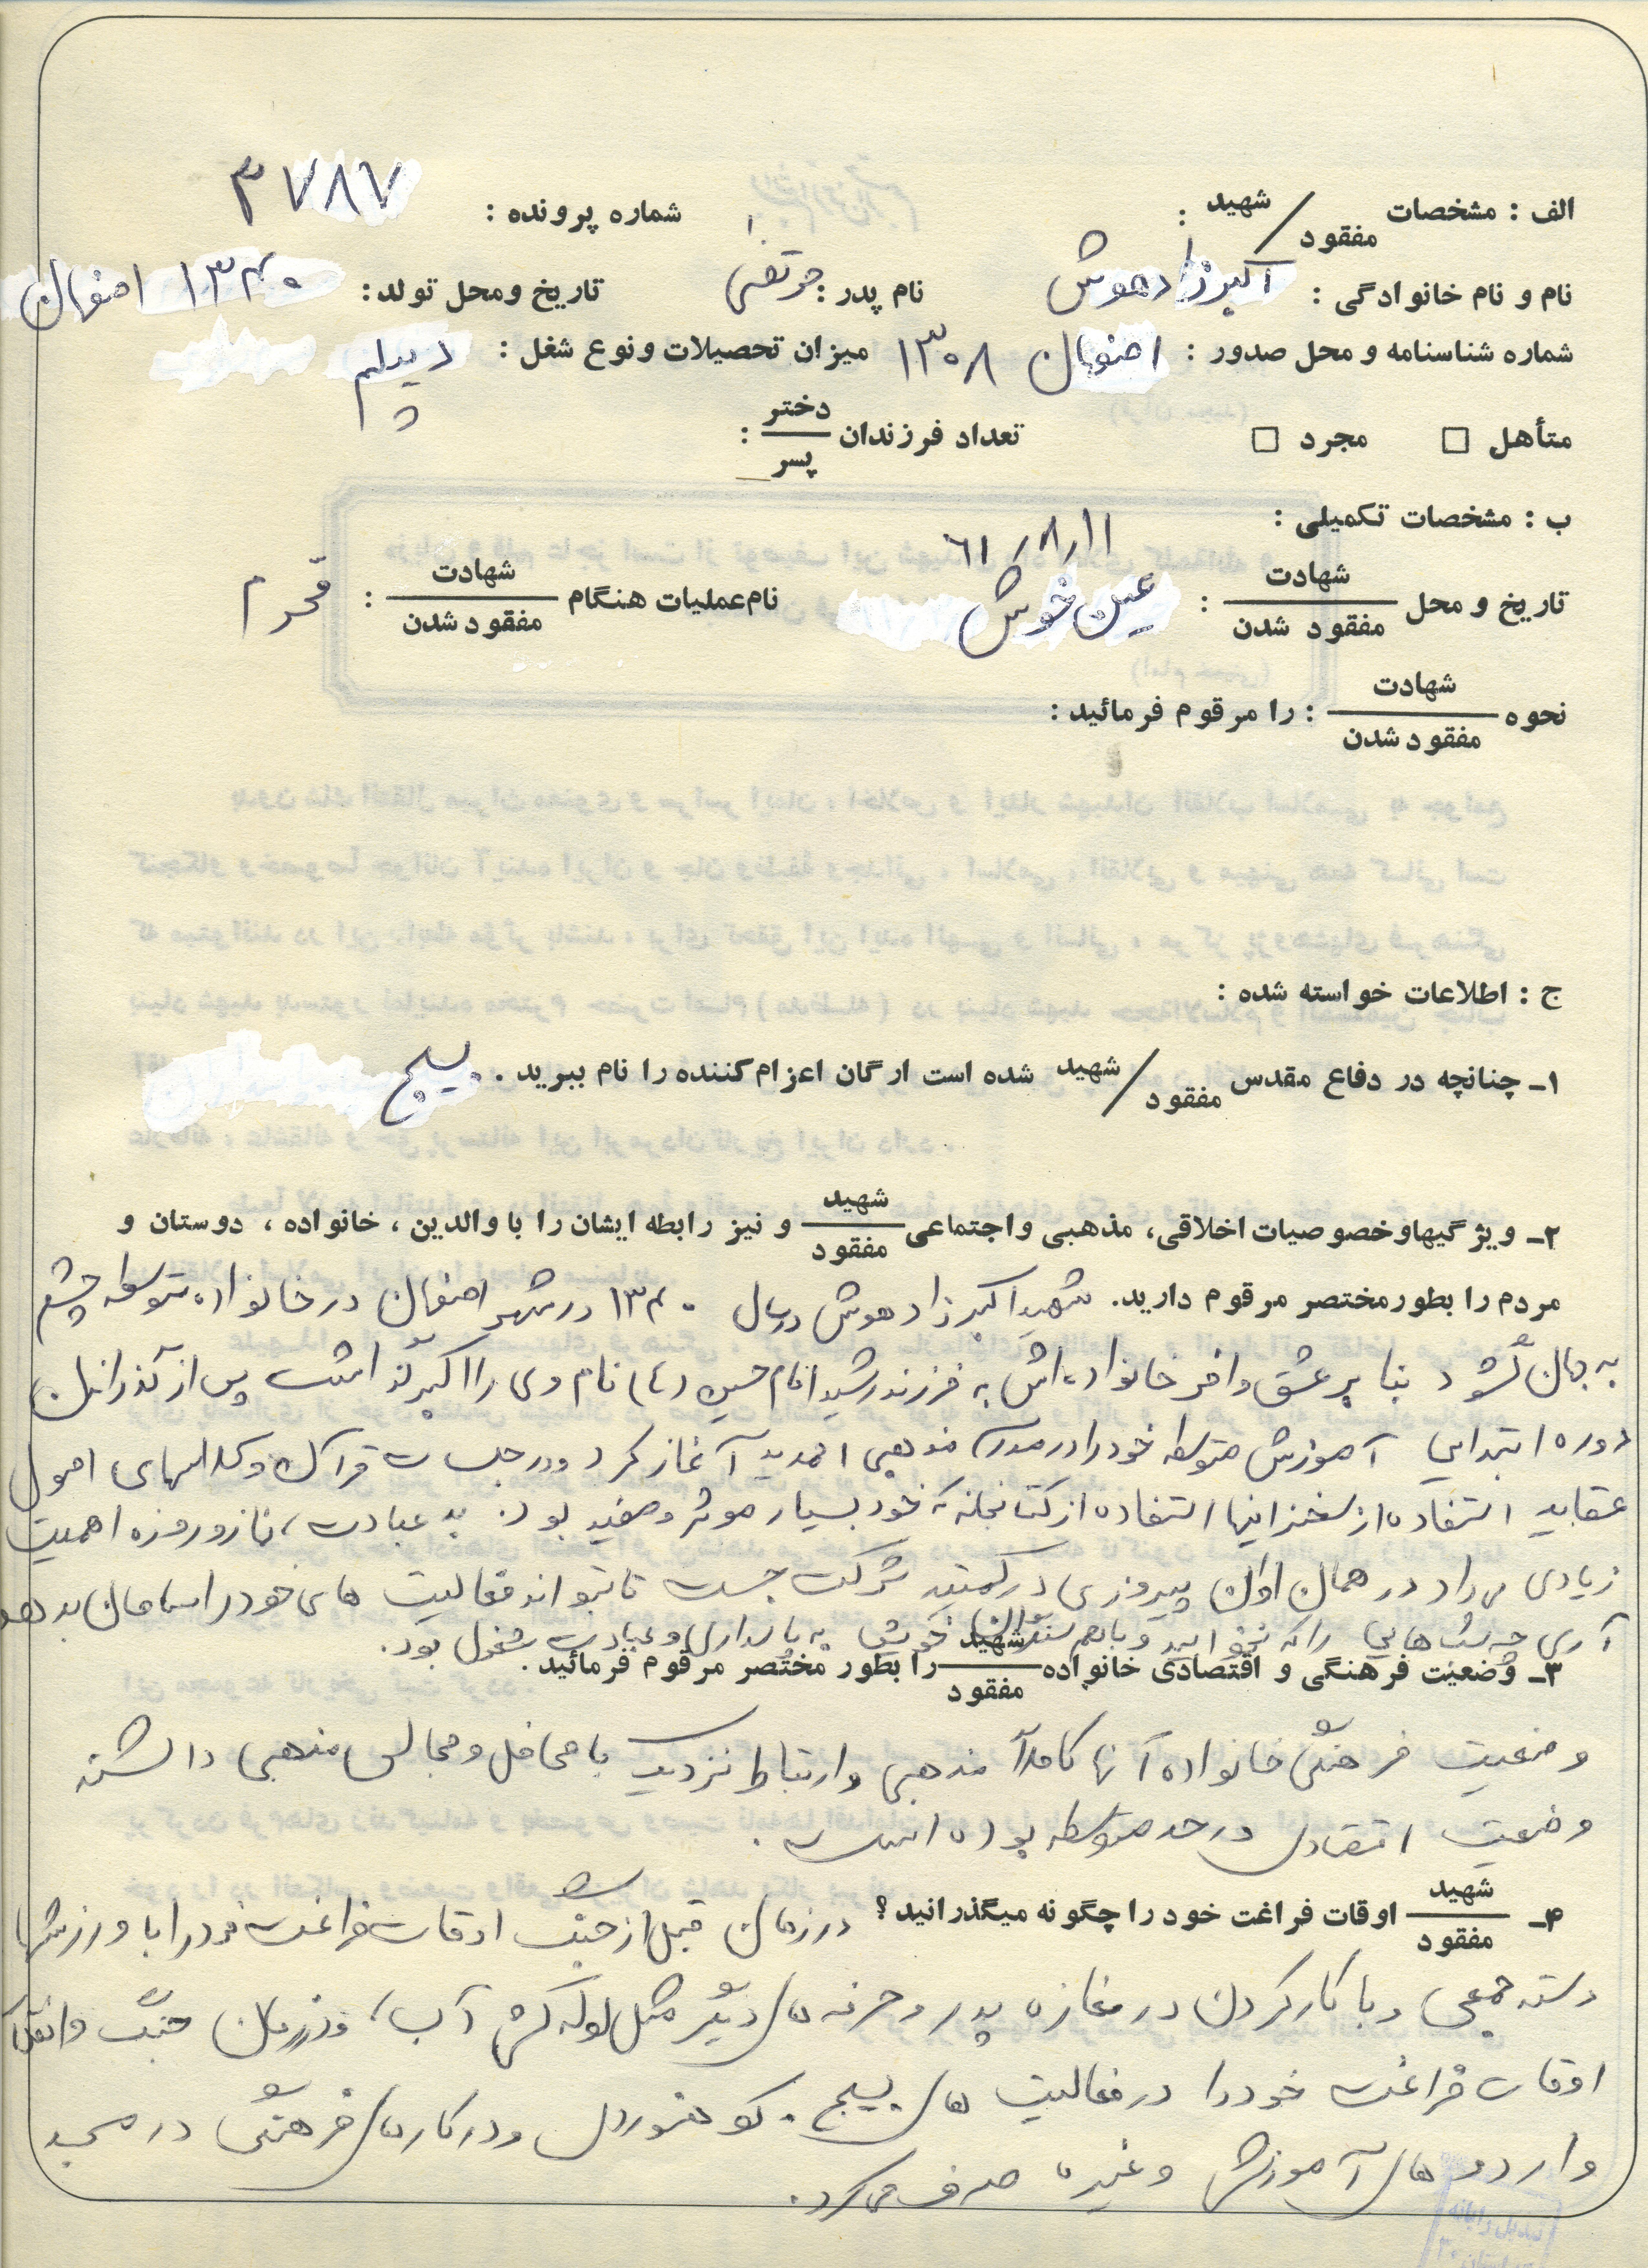 الف : مشخصات شهید / مفقود : شماره پرونده : ۳۷۸۷
نام و نام خانوادگی : اکبرزادهوش نام پدر : مرتضی تاریخ ومحل تولد : ۱۳۴۰ اصفهان
شماره شناسنامه و محل صدور : اصفهان ۱۳۰۸ میزان تحصیلات ونوع شغل : دیپلم
متأهل □ مجرد □ تعداد فرزندان دختر / پسر :
ب : مشخصات تکمیلی :
۶۱/۸/۱۱
تاریخ و محل شهادت / مفقود شدن : عین خوش نام عملیات هنگام شهادت / مفقود شدن : محرم
نحوه شهادت / مفقود شدن : را مرقوم فرمائید :
ج : اطلاعات خواسته شده :
۱ـ چنانچه در دفاع مقدس شهید / مفقود شده است ارگان اعزام کننده را نام ببرید . بسیج
۲ـ ویژگیهاوخصوصیات اخلاقی، مذهبی واجتماعی شهید / مفقود و نیز رابطه ایشان را با والدین ، خانواده ، دوستان و
مردم را بطور مختصر مرقوم دارید. شهید اکبرزادهوش در سال ۱۳۴۰ در شهر اصفهان در خانواده متوسطه چشم
به جهان گشود بنا بر عشق وافر خانواده اش به فرزند رشید امام حسین (ع) نام وی را اکبر گذاشت پس از گذراندن
دوره ابتدایی آموزش متوسطه خود را در مدرسه مذهبی احمدیه آغاز کرد و در جلسات قرآن و کلاسهای اصول
عقاید استفاده از سخنرانیها استفاده از کتابخانه که خود بسیار موثر و مفید بود. به عبادت، نماز و روزه اهمیت
زیادی می داد در همان اوان پیروزی در کمیته شرکت جست تا بتواند فعالیت های خود را سامان بدهد
آری چه شب هایی را که نخوابید و با همسنگران خویش به پاسداری و عبادت مشغول بود.
۳ـ وضعیت فرهنگی و اقتصادی خانواده شهید / مفقود را بطور مختصر مرقوم فرمائید .
وضعیت فرهنگی خانواده آنها کاملاً مذهبی و ارتباط نزدیک با محافل و مجالس مذهبی داشته
وضعیت اقتصادی در حد متوسطه بوده است .
۴ـ شهید / مفقود اوقات فراغت خود را چگونه میگذرانید؟ در زمان قبل از جنگ اوقات فراغت خود را با ورزشها
دسته جمعی و با کار کردن در مغازه پدر و حرفه های دیگر مثل لوله کشی آب، و در زمان جنگ و انقلاب
اوقات فراغت خود را در فعالیت های بسیج . کوهنوردی و در کارهای فرهنگی در مسجد
و اردوهای آموزشی و غیره صرف می کرد.